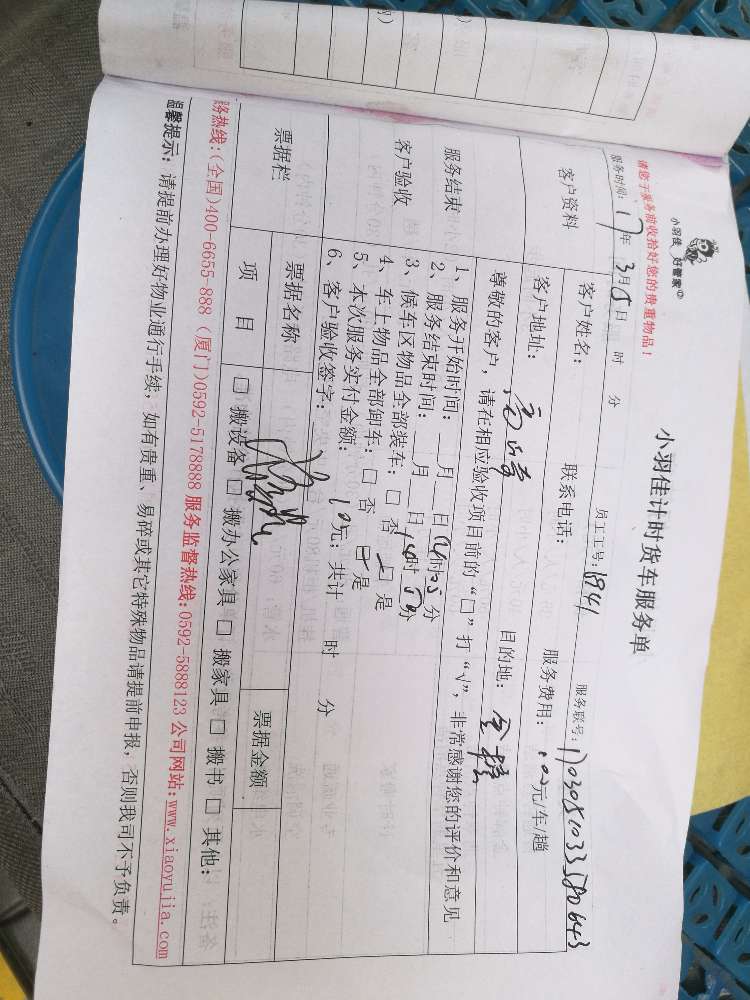 小羽佳 好管家
请您于服务前收拾好您的贵重物品！
小羽佳计时货车服务单
服务时间：17年3月5日 时 分 员工工号：8941 服务联号：1703081033580643
客户资料
客户姓名： 联系电话： 服务费用： 元/车/趟
客户地址： 目的地：
服务结束
客户验收
尊敬的客户，请在相应验收项目前的“□”打“√”，非常感谢您的评价和意见
1、服务开始时间：__月__日 时 分
2、服务结束时间：__月__日 时 分
3、候车区物品全部装车：□ 否 □ 是
4、车上物品全部卸车：□ 否 □ 是
5、本次服务实付金额： 元；共计 时 分
6、客户验收签字：
票据栏
票据名称 票据金额
项 目 □ 搬设备 □ 搬办公家具 □ 搬家具 □ 搬书 □ 其他：
务热线：(全国)400-6655-888 (厦门)0592-5178888 服务监督热线：0592-5888123 公司网站：www.xiaoyujia.com
温馨提示：请提前办理好物业通行手续，如有贵重、易碎或其它特殊物品请提前申报，否则我司不予负责。